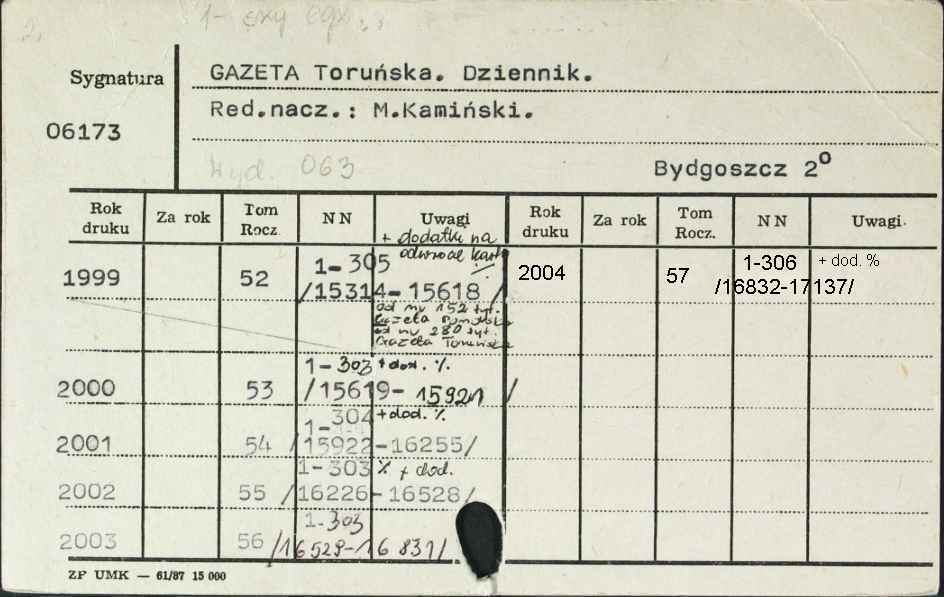 2.
1- egz.
Sygnatura
06173
GAZETA Toruńska. Dziennik.
Red.nacz.: M.Kamiński.
Wyd. 063
Bydgoszcz 2º
Rok druku Za rok Tom Rocz. NN Uwagi Rok druku Za rok Tom Rocz. NN Uwagi
+ dodatki na
odwrocie karty
1999 52 1-305
/15314-15618/
2004 57 1-306 + dod. %
/16832-17137/
od nr 152 tyt.
Gazeta
od nr 280 tyt.
Gazeta Toruńska
1-303 +dod. %
2000 53 /15619-15921/
1-304 +dod. %
2001 54 /15922-16255/
1-303 % + dod.
2002 55 /16226-16528/
1-303
2003 56 /16529-16831/
ZP UMK — 61/87 15 000